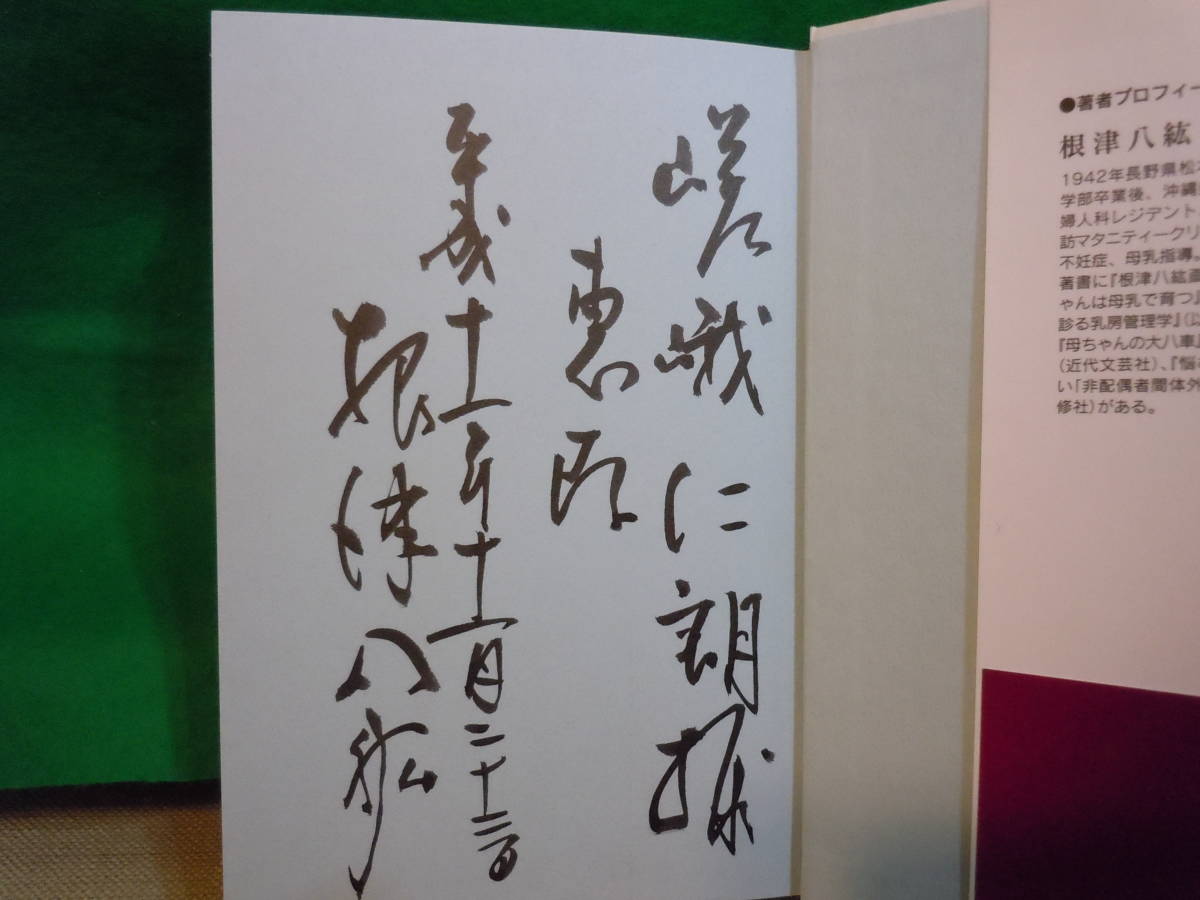 嵯峨仁朗様
恵存
平成十一年十一月二十三日
根津八紘
●著者プロフィー
根津八紘
1942年長野県松
学部卒業後、沖縄
婦人科レジデント
訪マタニティークリ
不妊症、母乳指導。
著書に『根津八紘
ゃんは母乳で育つ』
診る乳房管理学』(以
『母ちゃんの大八車』
(近代文芸社)、『悩
い「非配偶者間体外
修社)がある。